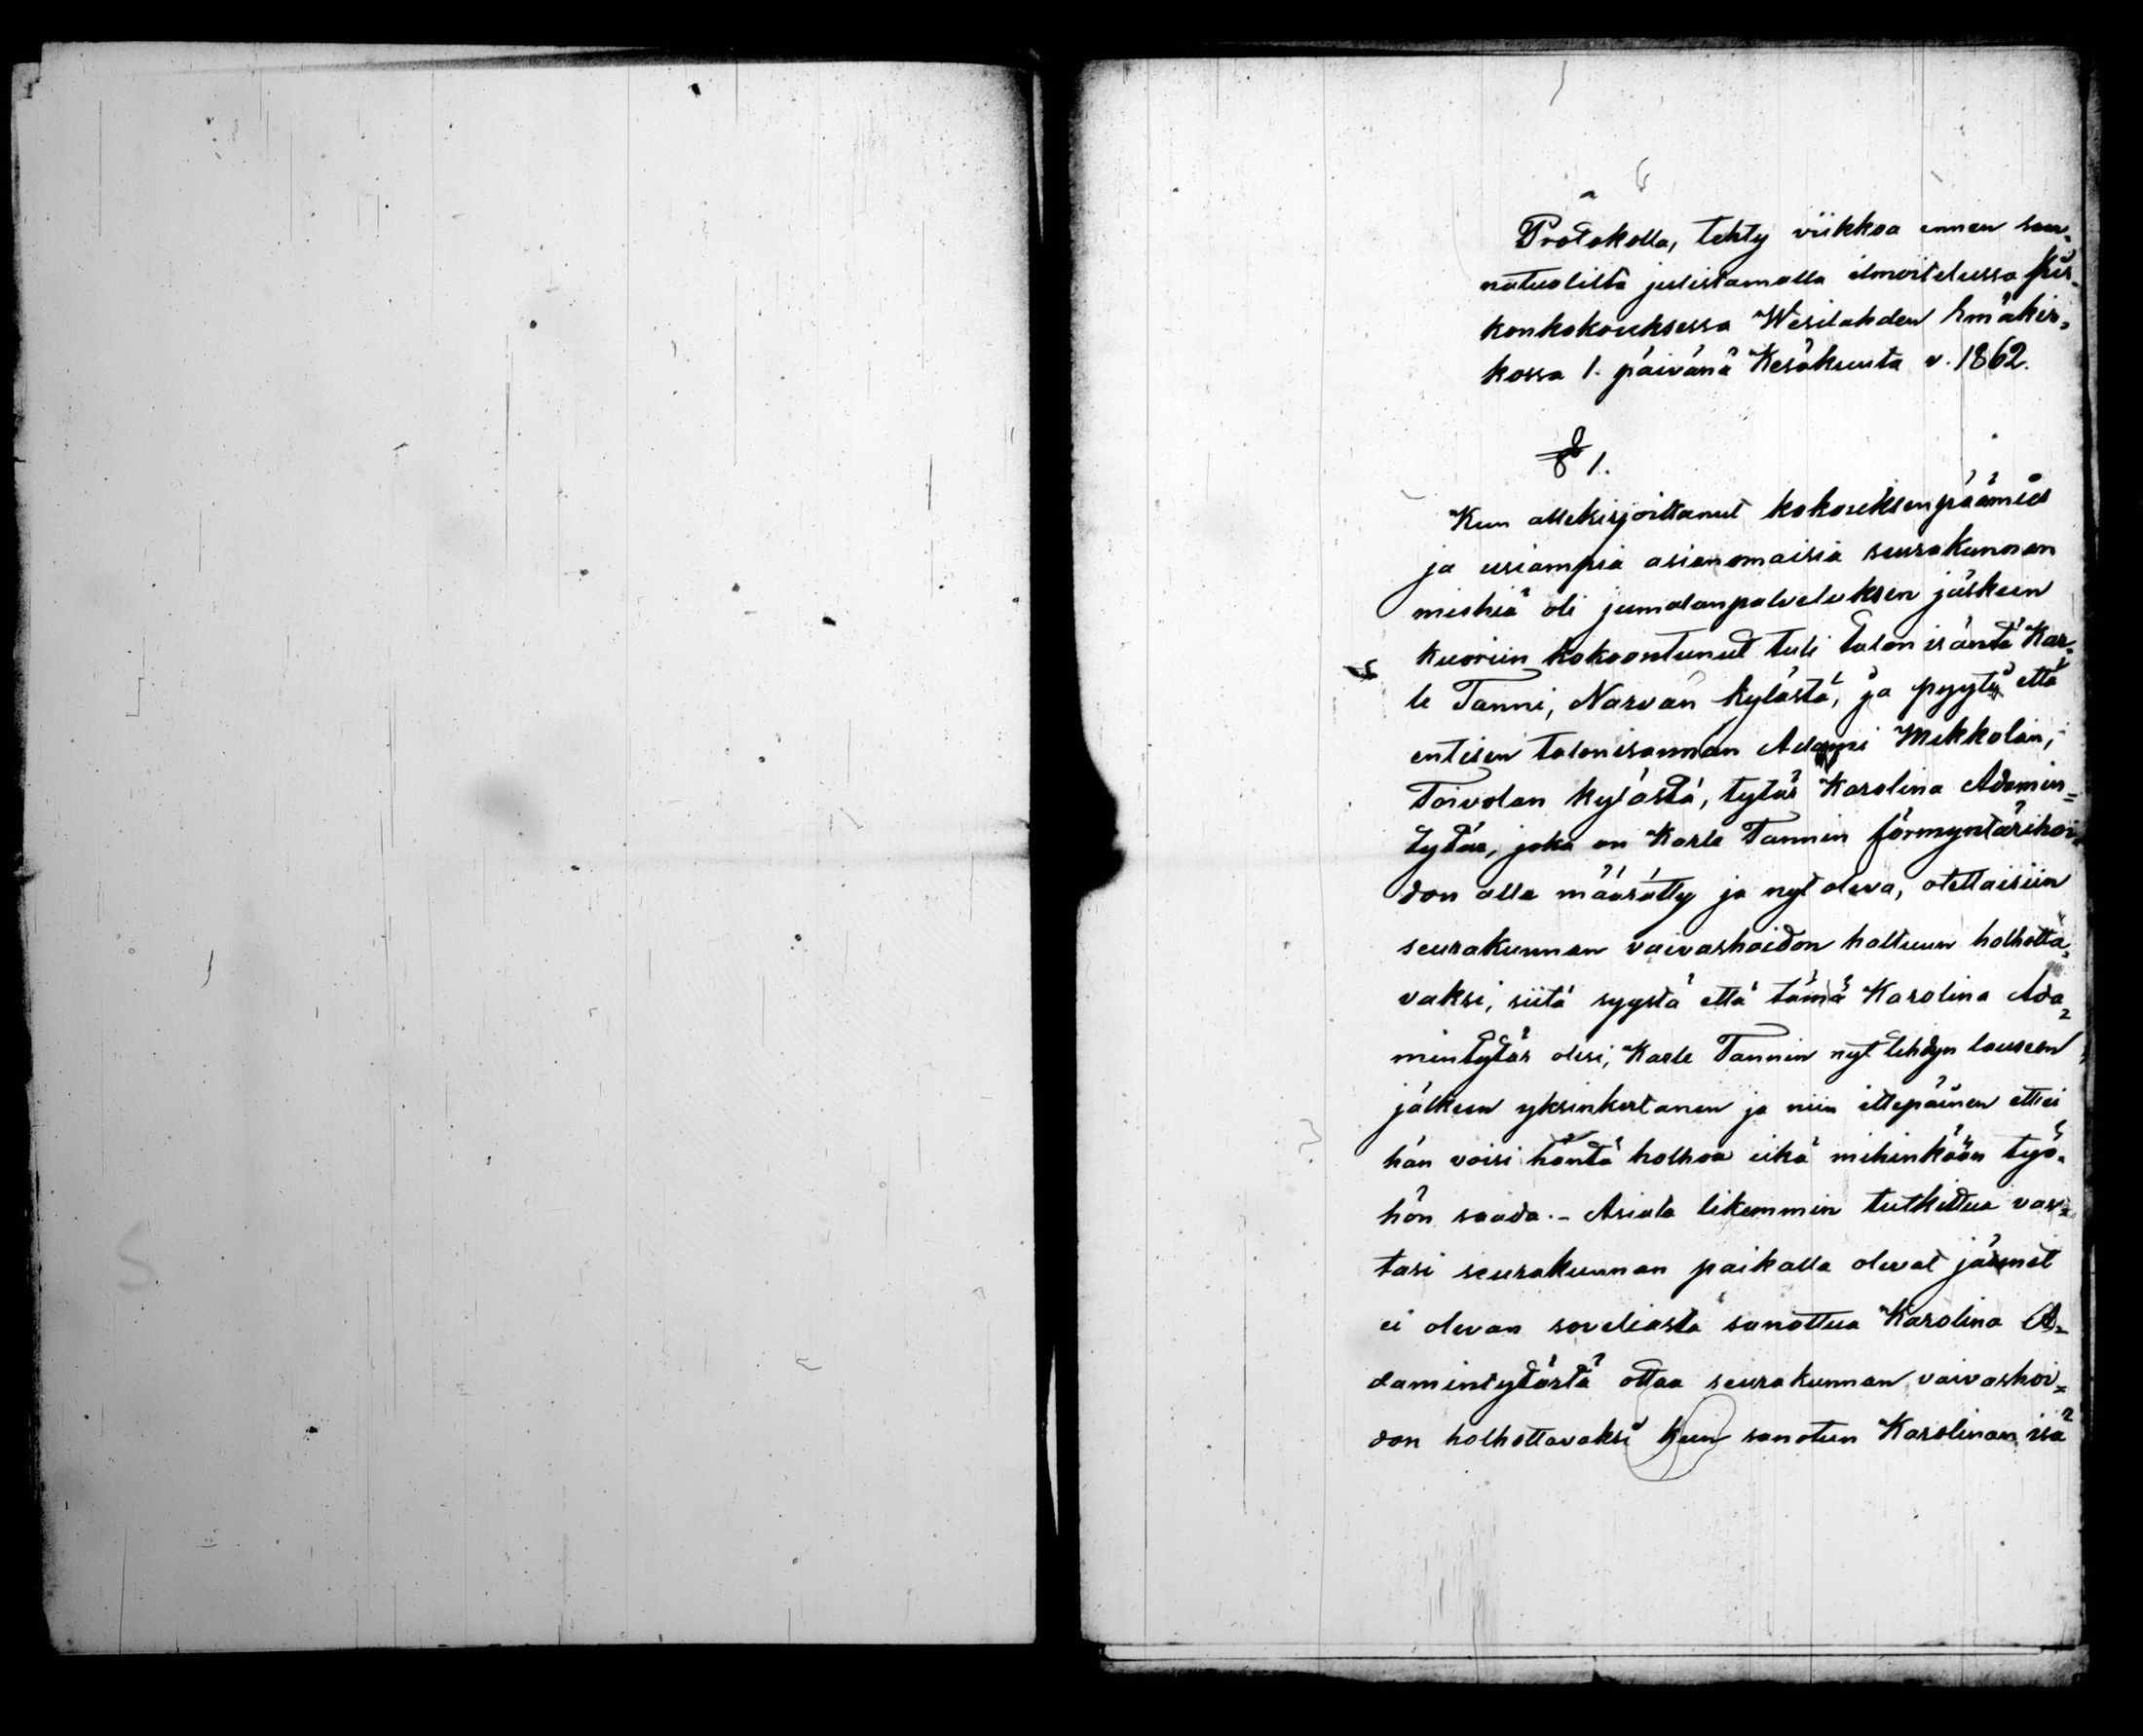 Protokolla, tehty viikkoa ennen saar-
natuolista julistamalla ilmoitetussa pitä-
konkokouksessa Wesilahden Emäkir-
kossa 1. päivänä Kesäkuuta v. 1862.
§ 1.
Kun allekirjoittanut kokouksenpäämies
ja usiampia asianomaisia seurakunnan
miehiä oli jumalanpalveluksen jälkeen
kuoriin kokoontunut tuli talon isäntä Kar-
le Tanni, Narvan kylästä, ja pyyty että
entisen talonisännän Adami Mikkolan,
Toivolan kylästä, tytär Karolina Adamin-
tytär, joka on Karle Tannin förmyntärihoi-
don alla määrätty ja nyt oleva, otettaisiin
seurakunnan vaivashoidon haltuun holhotta-
vaksi, siitä syystä että tämä Karolina Ada-
mintytär olisi, Karle Tannin nyt tehdyn lauseen
jälkeen yksinkertanen ja niin ittepäinen ettei
hän voisi häntä holhoa eikä mihinkään työ-
hön saada. - Asiata likemmin tutkittua vas-
tasi seurakunnan paikalla olevat jäsenet
ei olevan soveliasta sanottua Karolina A-
damintytärtä ottaa seurakunnan vaivashoi-
don holhottavaksi kun sanotun Karolinan isä